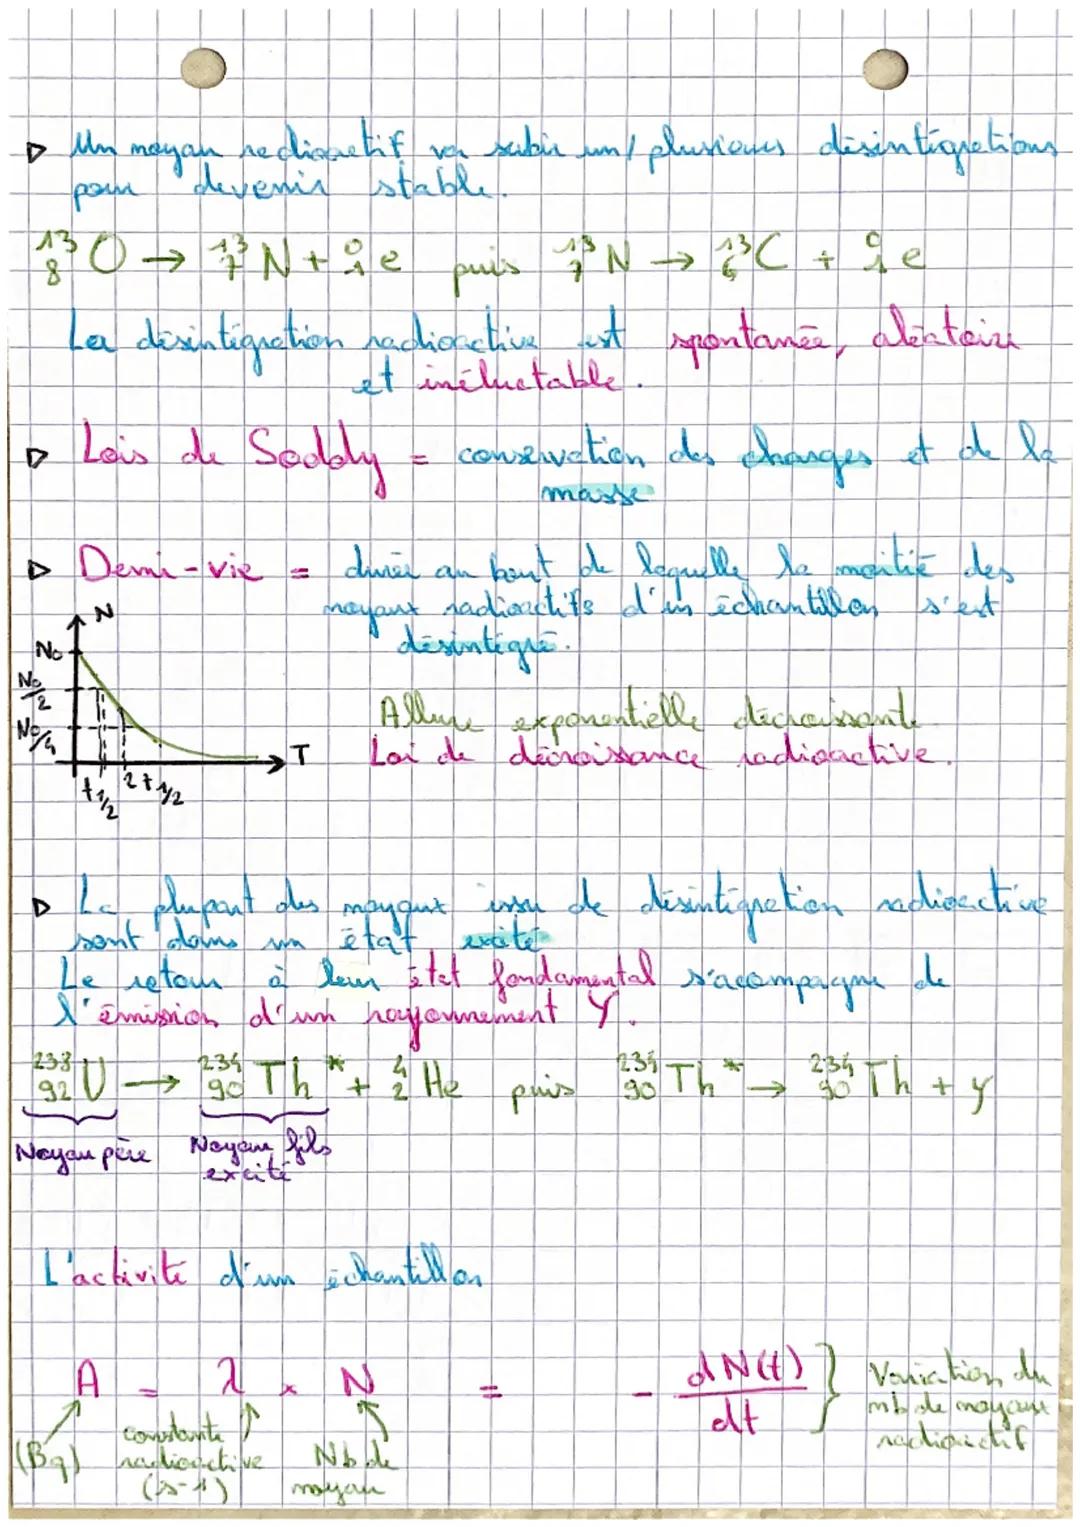 ▷ Un noyau radioactif va subir un/plusieurs désintégrations
pour devenir stable.
¹³₈O → ¹³₇N + ⁰₁e puis ¹³₇N → ¹³₆C + ⁰₁e
La désintégration radioactive est spontanée, aléatoire
et inéluctable.
▷ Lois de Soddy = conservation des charges et de la
masse
▷ Demi-vie = durée au bout de laquelle la moitié des
noyaux radioactifs d'un échantillon s'est
désintégré.
N
N₀
N₀/2
N₀/4
T
t1/2
2t1/2
Allure exponentielle décroissante
Loi de décroissance radioactive.
▷ La plupart des noyaux issu de désintégration radioactive
sont dans un état excité
Le retour à leur état fondamental s'acompagne de
l'émission d'un rayonnement γ.
²³⁸₉₂U → ²³⁴₉₀Th* + ⁴₂He puis ²³⁴₉₀Th* → ²³⁴₉₀Th + γ
Noyau père
Noyau fils
excité
L'activité d'un échantillon
A = λ × N = - dN(t)/dt } Variation du
nb de noyaux
radioactif
(Bq)
constante
radioactive
(s-1)
Nb de
noyau